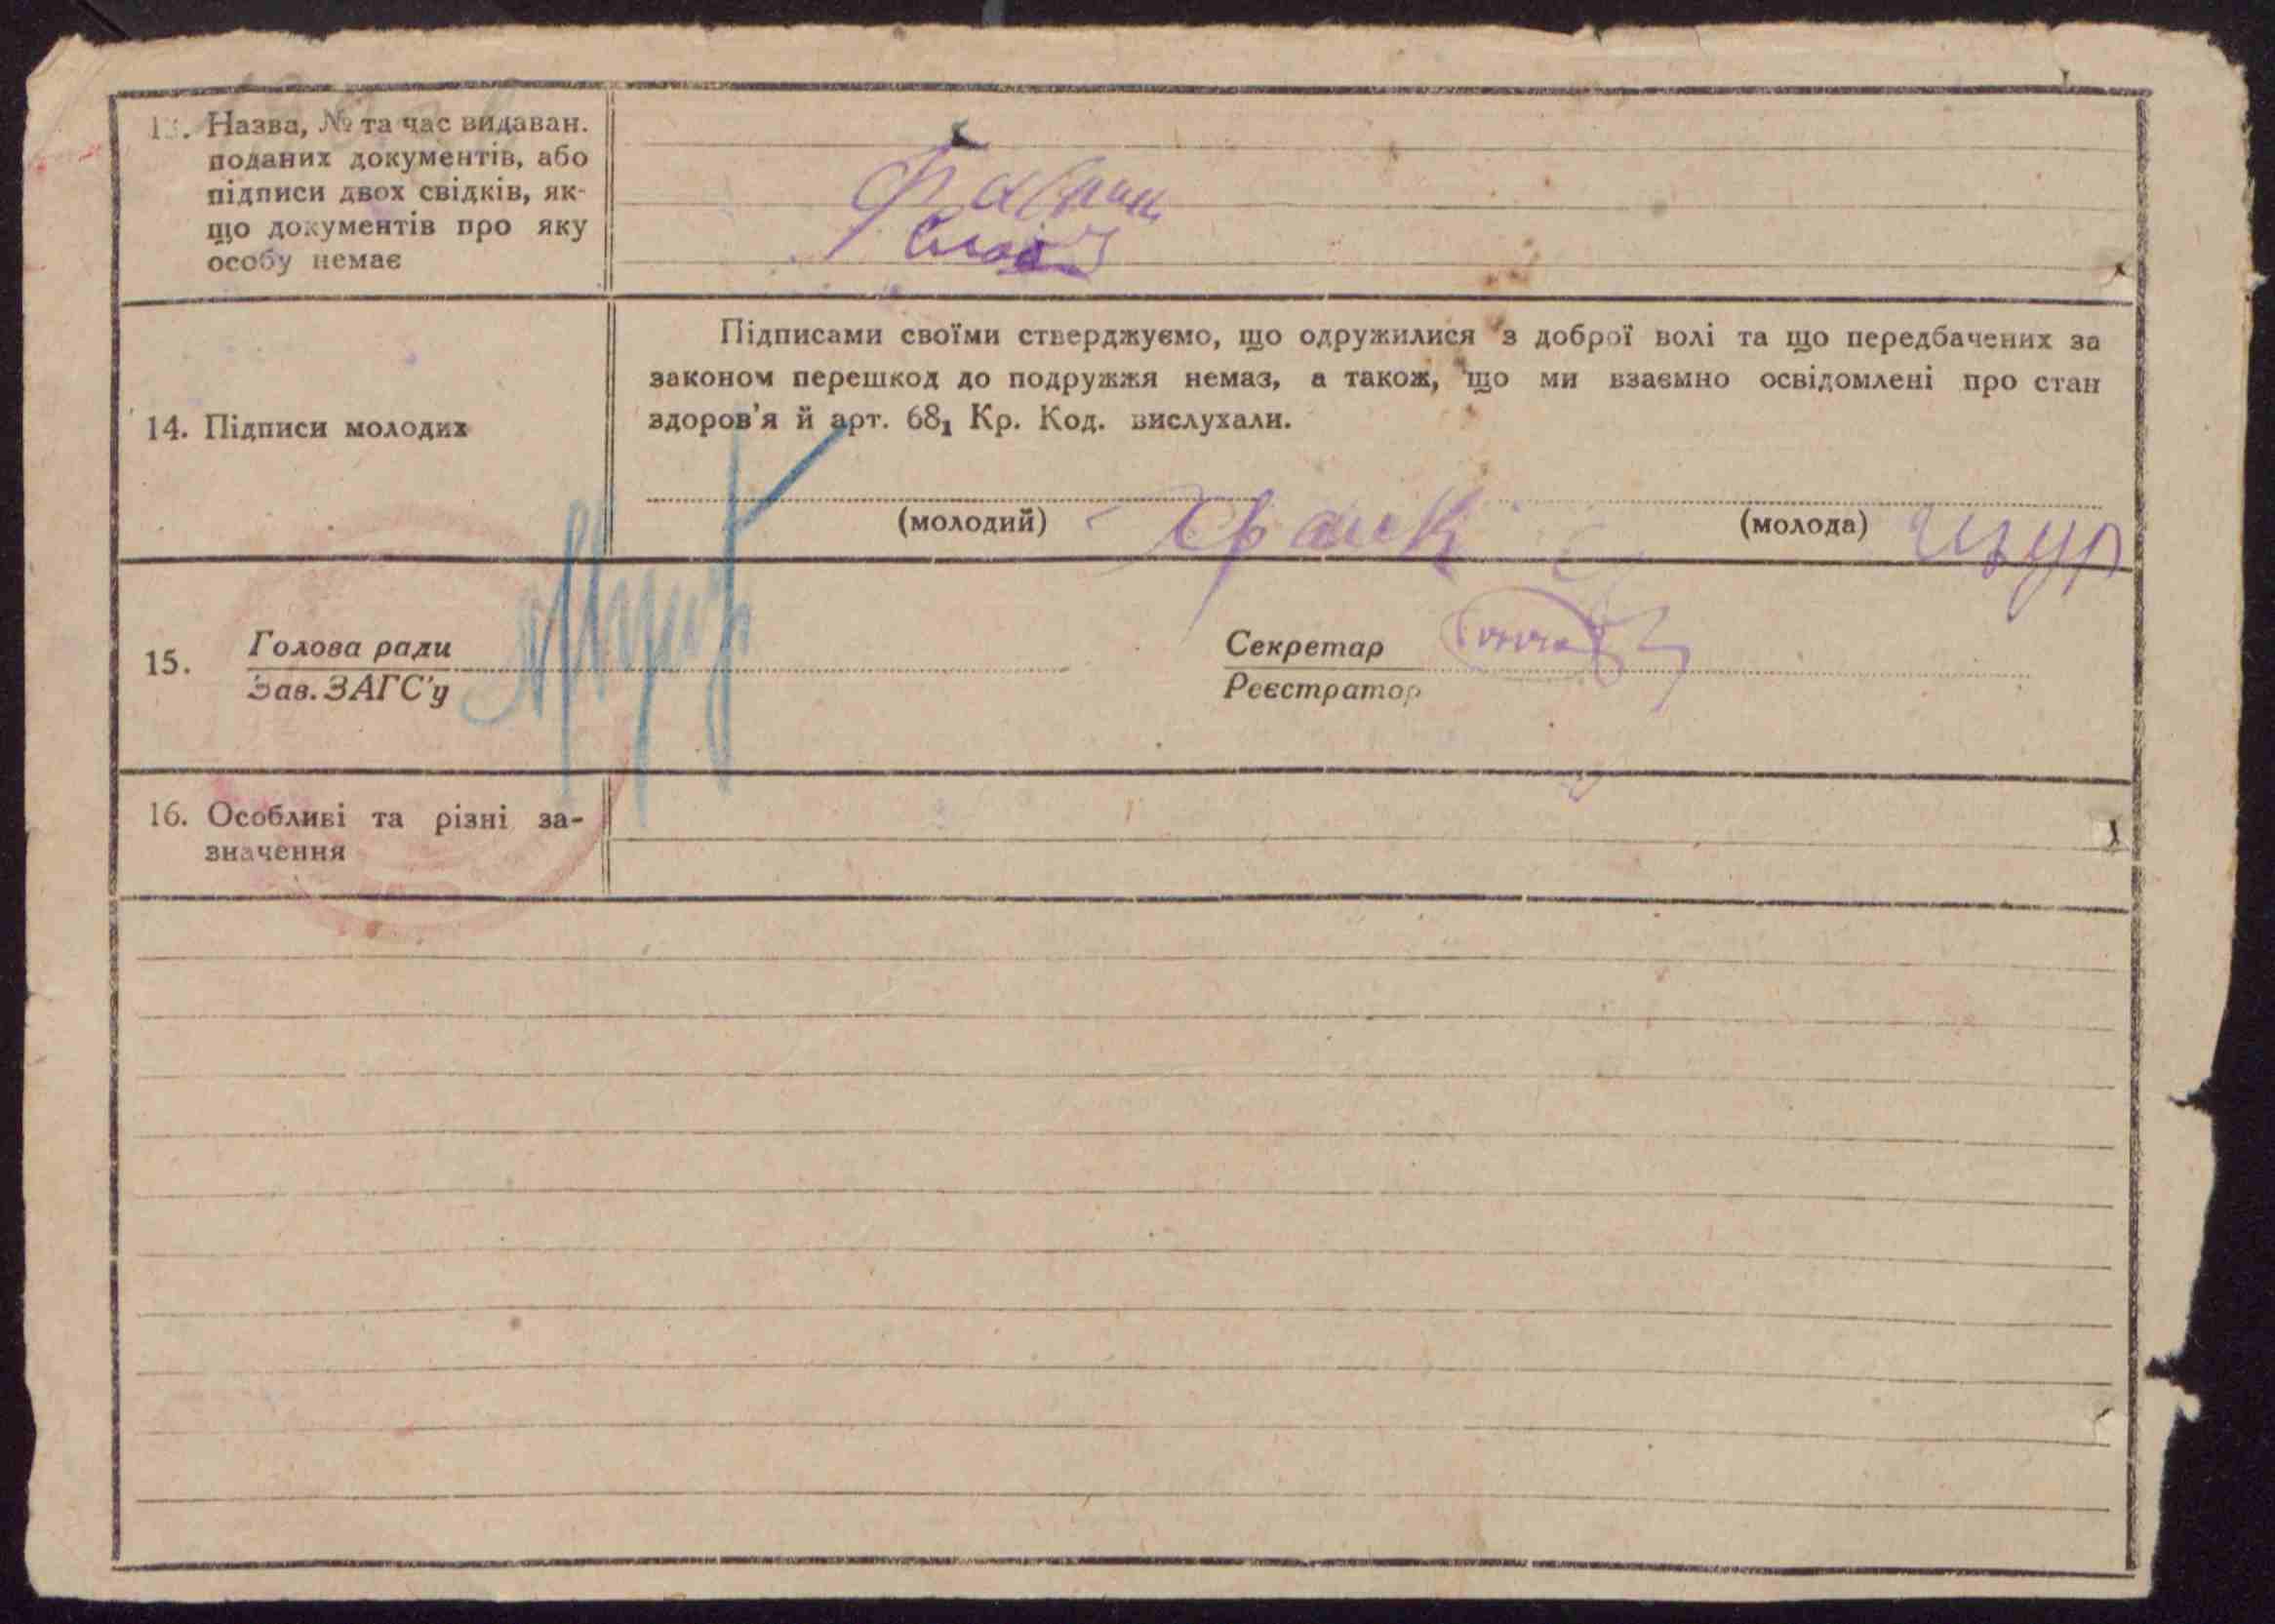 13. Назва, № та час видаван.
поданих документів, або
підписи двох свідків, як-
що документів про яку
особу немає
Підписами своїми стверджуємо, що одружилися з доброї волі та що передбачених за
законом перешкод до подружжя немаз, а також, що ми взаємно освідомлені про стан
здоров'я й арт. 68₁ Кр. Код. вислухали.
14. Підписи молодих
(молодий) Франк (молода)
15. Голова ради
Зав. ЗАГС'у
Секретар
Реєстратор
16. Особливі та різні за-
значення